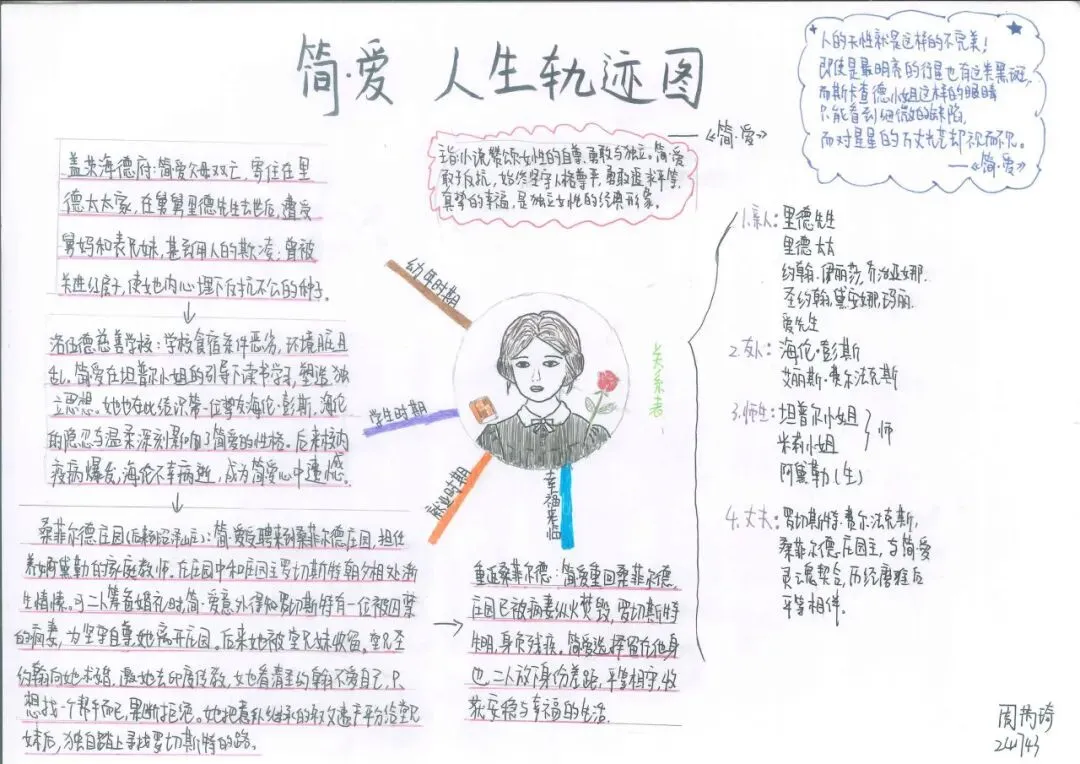 简·爱 人生轨迹图
人的天性就是这样的不完美！
即使是最明亮的行星也有这类黑斑，
而斯卡查德小姐这样的眼睛
只能看到细微的缺陷，
而对星星的万丈光芒却视而不见。
——《简·爱》
——《简·爱》
主旨：小说赞颂女性的自尊、勇敢与独立。简·爱
敢于反抗，始终坚守人格尊严，勇敢追求平等、
真挚的幸福，是独立女性的经典形象。
盖茨海德府：简爱父母双亡，寄住在里
德太太家，在舅舅里德先生去世后，遭受
舅妈和表兄妹，甚至用人的欺凌；曾被
关进红房子，使她内心埋下反抗不公的种子。
洛伍德慈善学校：学校食宿条件恶劣，环境脏且
乱。简爱在坦普尔小姐的引导下读书学习，塑造独
立思想。她也在此结识第一位挚友海伦·彭斯，海伦
的隐忍与温柔深刻影响了简爱的性格。后来校内
疫病爆发，海伦不幸病逝，成为简爱心中遗憾。
桑菲尔德庄园（后来到沼泽山庄）：简·爱受聘来到桑菲尔德庄园，担任
养女阿黛勒的家庭教师。在庄园中和庄园主罗切斯特朝夕相处渐
生情愫。可二人筹备婚礼时，简·爱意外得知罗切斯特有一位被囚禁
的疯妻，为坚守自尊她离开庄园。后来她被堂兄妹收留。堂兄圣
约翰向她求婚，邀她去印度传教，女也看清圣约翰不爱自己，只
想找一个帮手而已，果断拒绝。她把意外继承的叔父遗产平分给堂兄
妹后，独自踏上寻找罗切斯特的路。
重返桑菲尔德：简爱重回桑菲尔德，
庄园已被疯妻纵火焚毁，罗切斯特
失明，身负残疾。简爱选择留在他身
边，二人放下身份差距，平等相守，收
获安稳与幸福的生活。
幼年时期
学生时期
就业时期
幸福来临
关系者
1.亲人：里德先生
里德太太
约翰·伊丽莎，乔治亚娜，
圣约翰，黛安娜，玛丽，
爱先生
2.友人：海伦·彭斯
艾丽斯·费尔法克斯
3.师生：坦普尔小姐
米莉小姐
师
阿黛勒（生）
4.丈夫：罗切斯特·费尔法克斯，
桑菲尔德庄园主，与简爱
灵魂契合，历经磨难后
平等相伴。
241743